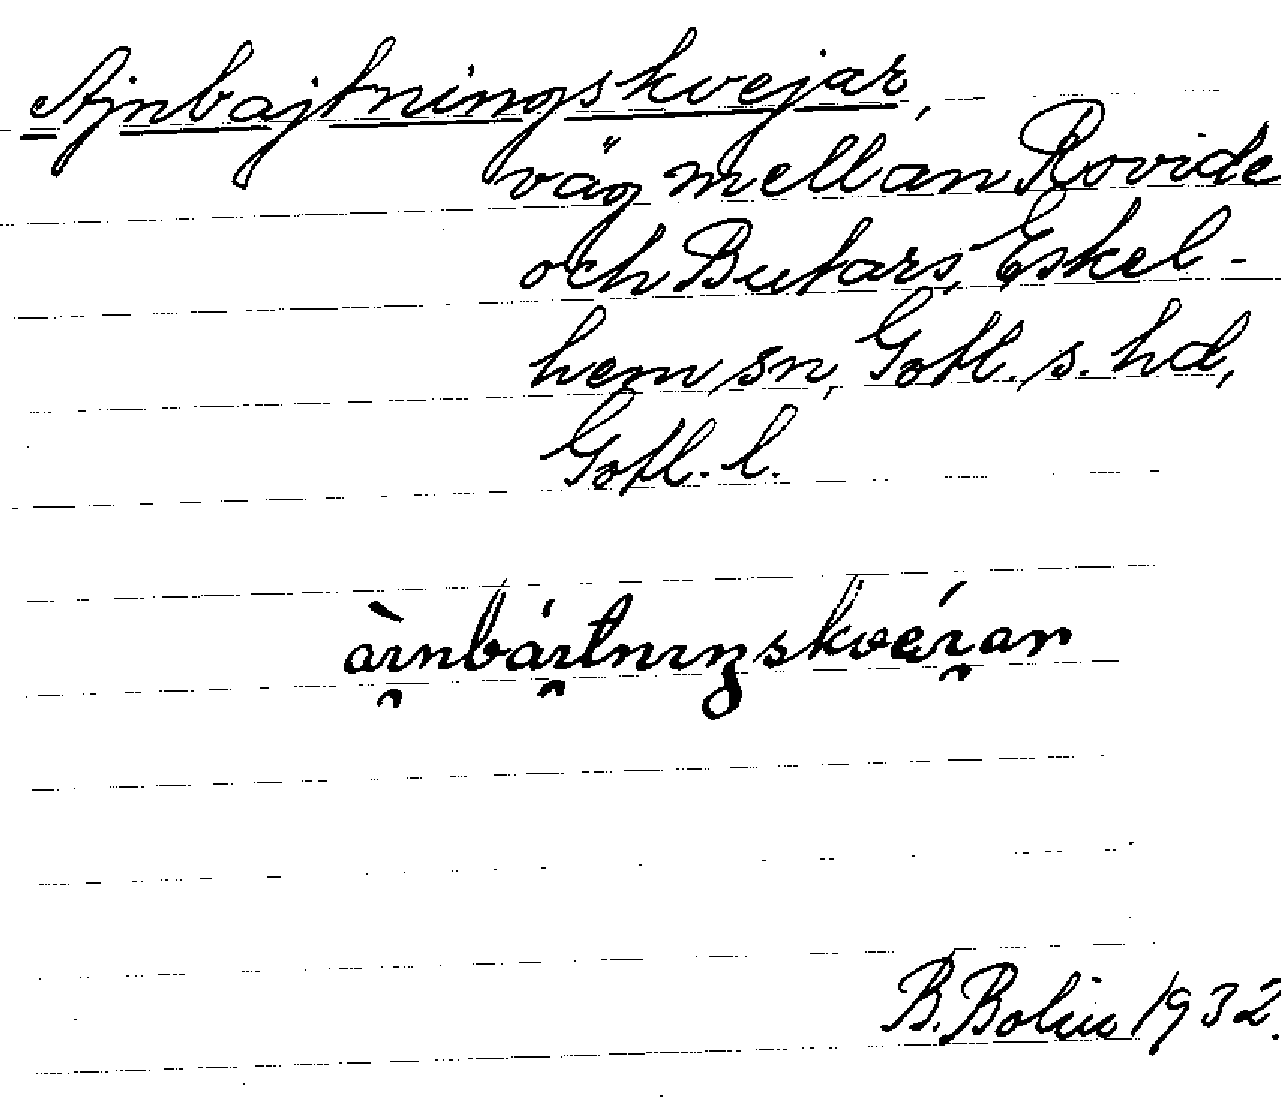 Ajnbajtningskvejar,
väg mellan Rovide
och Butars, Eskel-
hem sn, Gotl. s. hd,
Gotl. l.
àɪ̯nbáɪ̯tnɪŋskvéɪ̯ar
B. Bolin 1932.